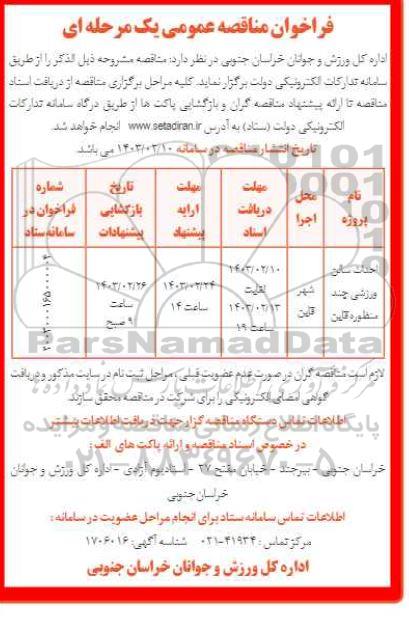 فراخوان مناقصه عمومی یک مرحله ای
اداره کل ورزش و جوانان خراسان جنوبی در نظر دارد: مناقصه مشروحه ذیل الذکر را از طریق
سامانه تدارکات الکترونیکی دولت برگزار نماید. کلیه مراحل برگزاری مناقصه از دریافت اسناد
مناقصه تا ارائه پیشنهاد مناقصه گران و بازگشایی پاکت ها از طریق درگاه سامانه تدارکات
الکترونیکی دولت (ستاد) به آدرس www.setadiran.ir انجام خواهد شد.
تاریخ انتشار مناقصه در سامانه ۱۴۰۳/۰۲/۱۰ می باشد.
نام پروژه
محل اجرا
مهلت دریافت اسناد
مهلت ارایه پیشنهاد
تاریخ بازگشایی پیشنهادات
شماره فراخوان در سامانه ستاد
احداث سالن ورزشی چند منظوره قاین
شهر قاین
۱۴۰۳/۰۲/۱۰ لغایت ۱۴۰۳/۰۲/۱۳ ساعت ۱۹
۱۴۰۳/۰۲/۲۴ ساعت ۱۴
۱۴۰۳/۰۲/۲۶ ساعت ۹ صبح
ParsNamadData
لازم است مناقصه گران در صورت عدم عضویت قبلی، مراحل ثبت نام در سایت مذکور و دریافت
گواهی امضای الکترونیکی را برای شرکت در مناقصه محقق سازند.
اطلاعات تماس دستگاه مناقصه گزار جهت دریافت اطلاعات بیشتر
در خصوص اسناد مناقصه و ارائه پاکت های الف:
۰۲۱-۸۸۳۴۹۶۷۰-۵
خراسان جنوبی - بیرجند - خیابان مفتح ۲۷ - استادیوم آزادی - اداره کل ورزش و جوانان
خراسان جنوبی
اطلاعات تماس سامانه ستاد برای انجام مراحل عضویت در سامانه:
مرکز تماس: ۴۱۹۳۴-۰۲۱ شناسه آگهی: ۱۷۰۶۰۱۶
اداره کل ورزش و جوانان خراسان جنوبی